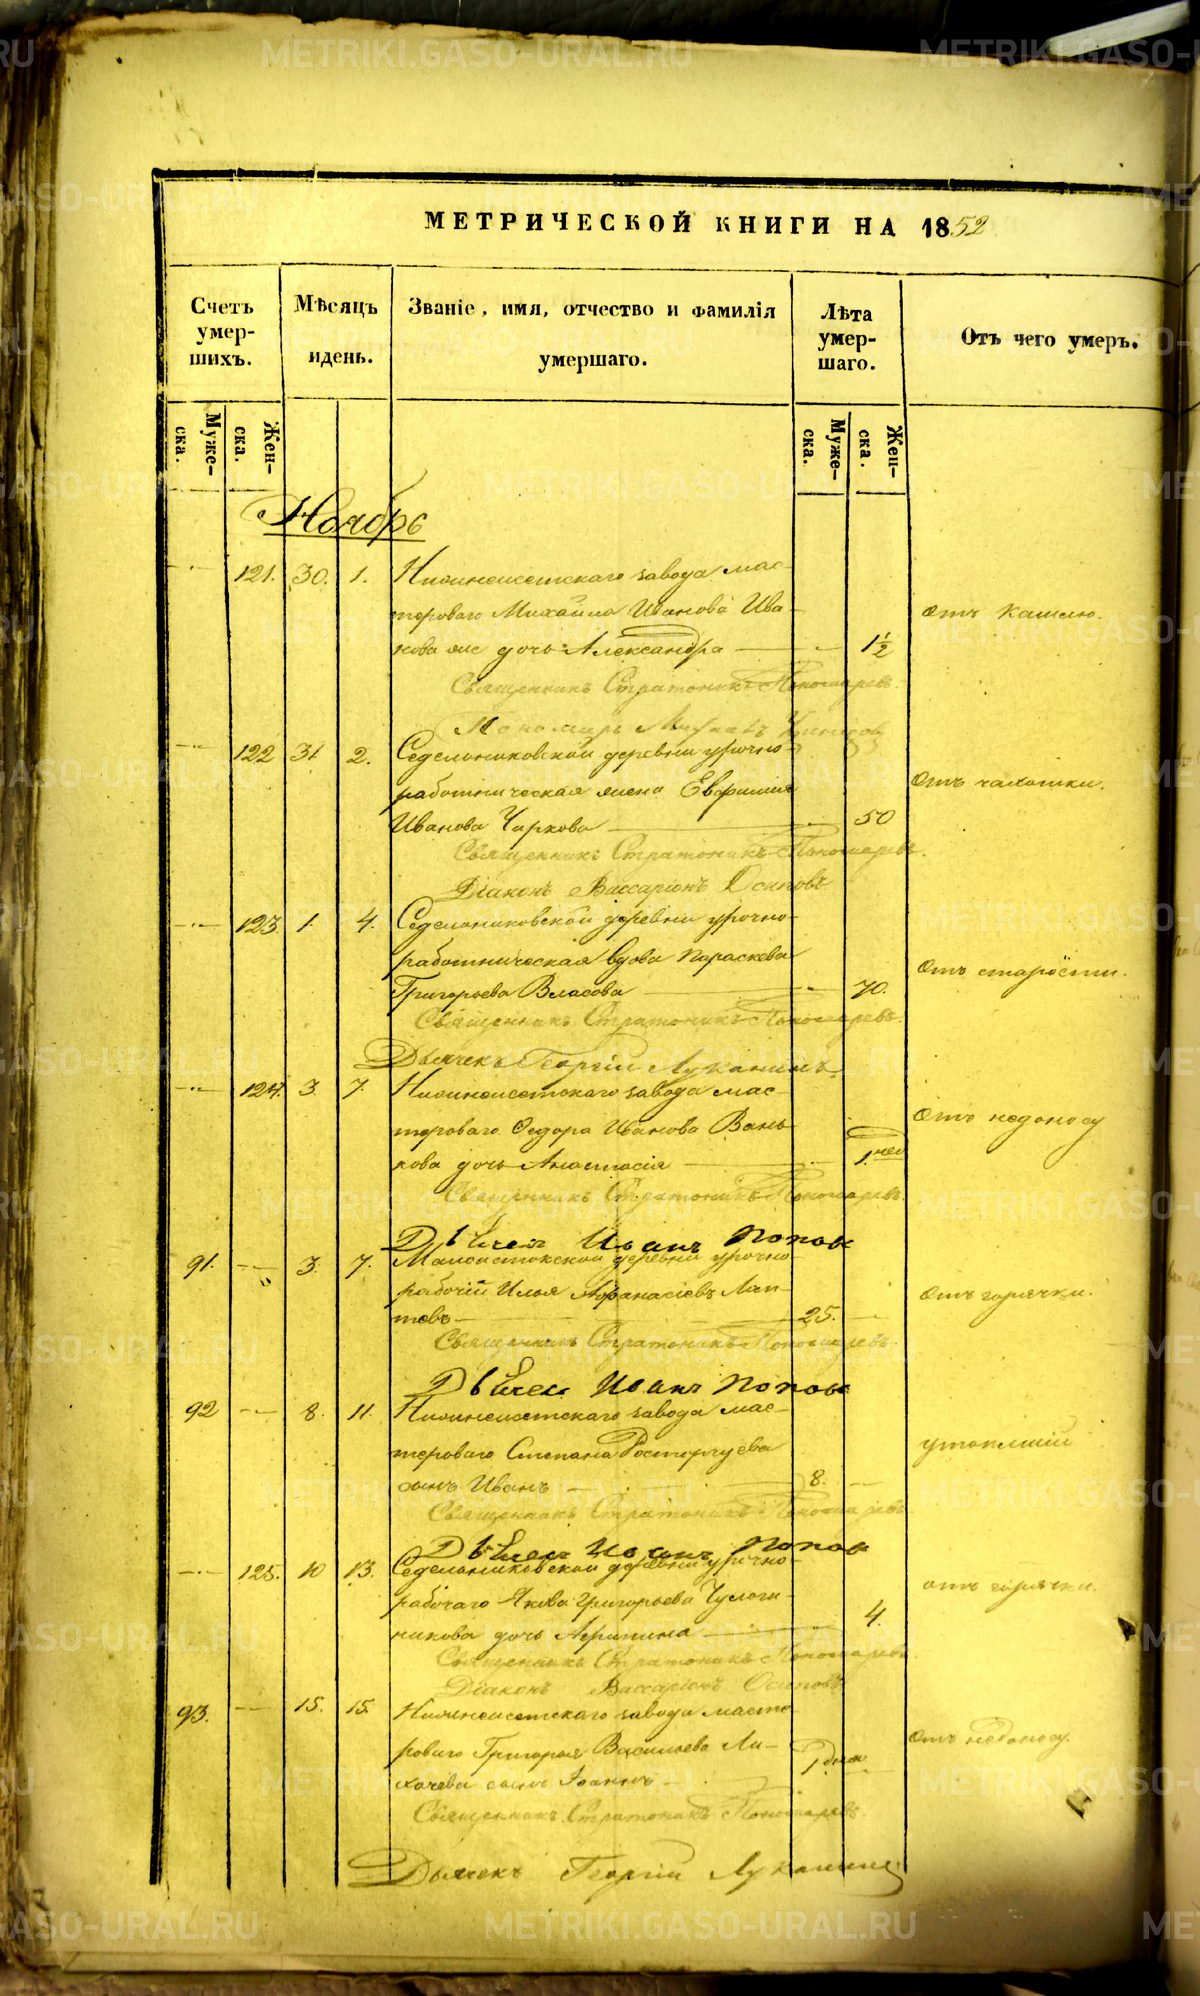 МЕТРИЧЕСКОЙ КНИГИ НА 1852
Счетъ умершихъ.
Мѣсяцъ идень.
Званіе, имя, отчество и фамилія умершаго.
Лѣта умершаго.
Отъ чего умеръ.
Мужеска.
Женска.
Мужеска.
Женска.
Ноябрь
121. 30. 1. Нижнеисетскаго завода мас-
тероваго Михаила Иванова Ива- отъ кашлю.
кова же дочь Александра 1½
Священникъ Стратоникъ Пономаревъ.
Пономарь
122 31 2. Седельниковской деревни урочно-
работническая жена Евфимия отъ чахотки.
Иванова Чиркова 50
Священникъ Стратоникъ Пономаревъ.
Діаконъ Виссаріонъ Осиповъ
123. 1. 4. Седельниковской деревни урочно-
работническая вдова Параскева отъ старости.
Григорьева Власова 70.
Священникъ Стратоникъ Пономаревъ.
Дьячекъ Георгій Луканинъ
124. 3. 7. Нижнеисетскаго завода мас-
тероваго Федора Иванова Вань- отъ недоносу
кова дочь Анастасія 1. нед
Священникъ Стратоникъ Пономаревъ.
Иванъ Попов
91. 3. 7. Малоистокской деревни урочно
рабочій Илья Афанасіевъ Лап- отъ горячки.
тевъ 25.
Священникъ Стратоникъ Пономаревъ
Иванъ Попов
92 8. 11. Нижнеисетскаго завода мас-
тероваго Степана
сынъ Иванъ 8.
Священникъ Стратоникъ Пономаревъ
Иванъ Попов
125. 10 13. Седельниковской деревни урочно-
рабочаго Якова Григорьева отъ горячки.
никова дочь Агрипина 4.
Священникъ Стратоникъ Пономаревъ
Діаконъ Виссаріонъ Осиповъ
93. 15. 15. Нижнеисетскаго завода масте-
роваго Григорья Васильева Ли- отъ недоносу.
хачева сынъ Іоаннъ 1 дня
Священникъ Стратоникъ Пономаревъ.
Дьячекъ Георгій Луканинъ
METRIKI.GASO-URAL.RU